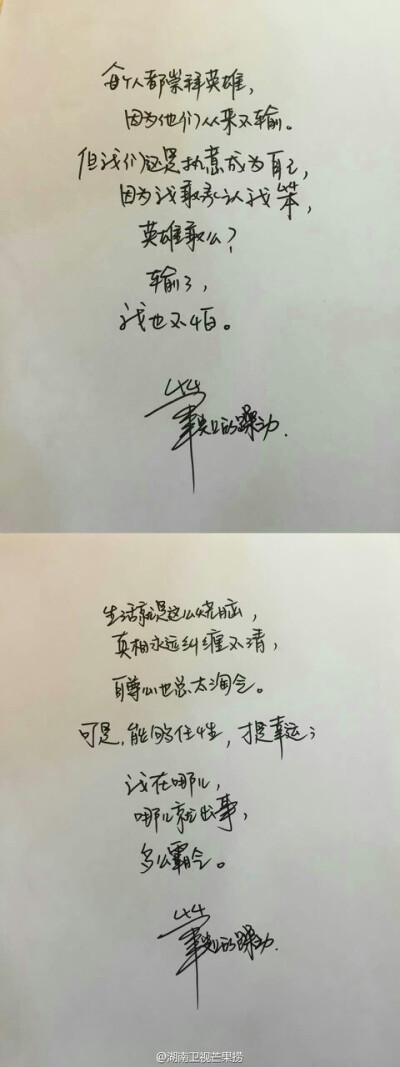 每个人都崇拜英雄，
因为他们从来不输。
但我们还是执意成为自己，
因为我敢承认我笨，
英雄敢么？
输了，
我也不怕。
的躁动.
生活就是这么烧脑，
真相永远纠缠不清，
自尊心也总太淘气。
可是，能够任性，才是幸运；
我在哪儿，
哪儿就出事，
多么霸气。
的躁动.
@湖南卫视芒果捞